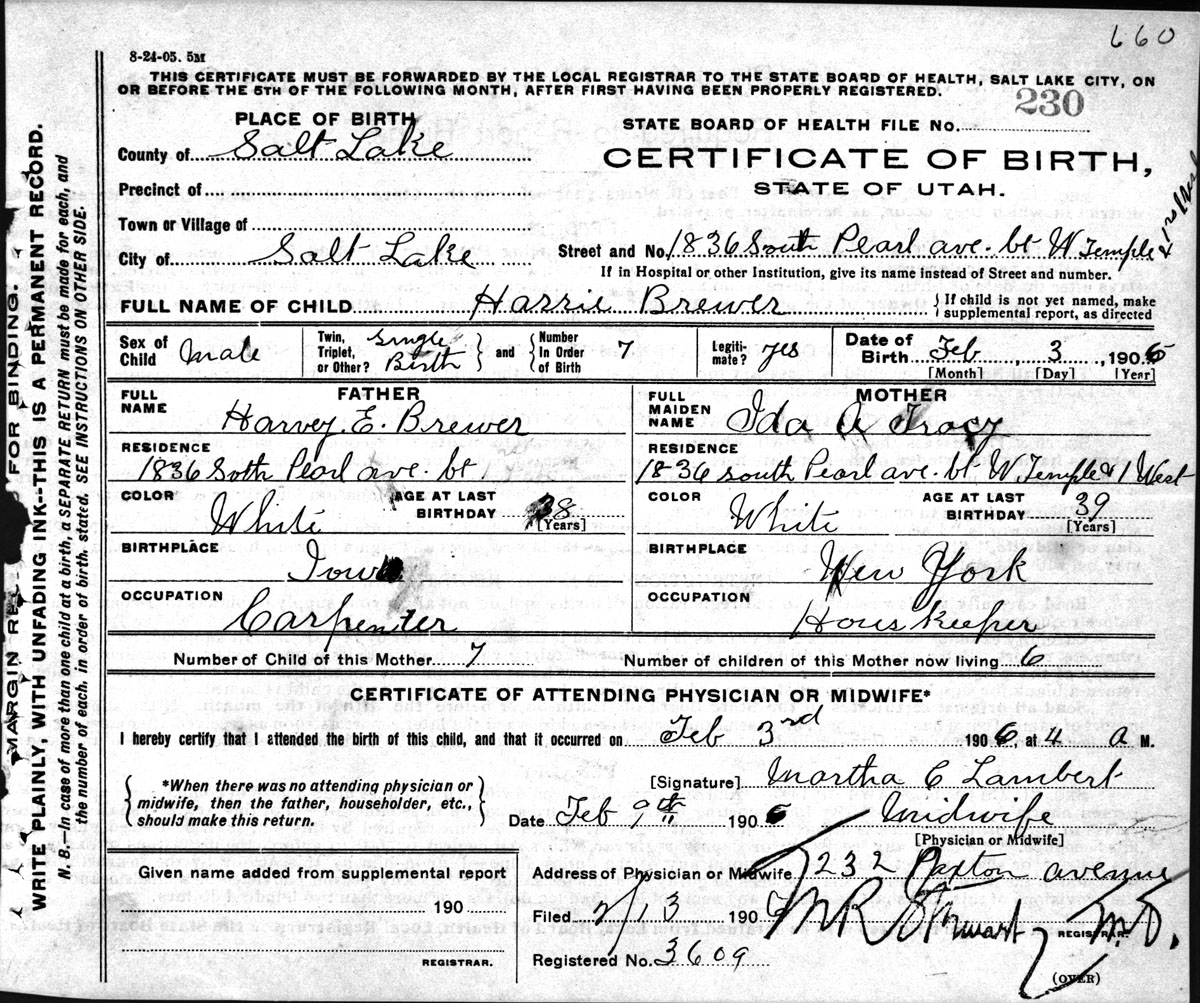 660
8-24-05. 5M
THIS CERTIFICATE MUST BE FORWARDED BY THE LOCAL REGISTRAR TO THE STATE BOARD OF HEALTH, SALT LAKE CITY, ON
OR BEFORE THE 5TH OF THE FOLLOWING MONTH, AFTER FIRST HAVING BEEN PROPERLY REGISTERED.
230
PLACE OF BIRTH
STATE BOARD OF HEALTH FILE No.
County of Salt Lake
CERTIFICATE OF BIRTH,
Precinct of
STATE OF UTAH.
Town or Village of
City of Salt Lake
Street and No. 1836 South Pearl ave. bt W Temple &
If in Hospital or other Institution, give its name instead of Street and number.
FULL NAME OF CHILD Harrie Brewer
{If child is not yet named, make
supplemental report, as directed
Sex of Child Male
Twin, Triplet, or Other? Single Birth } and { Number In Order of Birth 7
Legiti-mate? yes
Date of Birth Feb, 3, 1906
[Month] [Day] [Year]
FATHER
FULL NAME Harvey. E. Brewer
RESIDENCE
1836 Soth Pearl ave. bt
COLOR White
AGE AT LAST BIRTHDAY 38 [Years]
BIRTHPLACE
Iowa
OCCUPATION
Carpenter
MOTHER
FULL MAIDEN NAME Ida A Tracy
RESIDENCE
1836 south Pearl ave. bt W Temple & 1 West
COLOR White
AGE AT LAST BIRTHDAY 39 [Years]
BIRTHPLACE
New York
OCCUPATION
Hous Keeper
Number of Child of this Mother 7
Number of children of this Mother now living 6
CERTIFICATE OF ATTENDING PHYSICIAN OR MIDWIFE*
I hereby certify that I attended the birth of this child, and that it occurred on Feb 3rd 1906, at 4 a M.
{*When there was no attending physician or
midwife, then the father, householder, etc.,
should make this return.}
[Signature] Martha C Lambert
Date Feb 9th 1906 Midwife
[Physician or Midwife]
Given name added from supplemental report
190
REGISTRAR.
Address of Physician or Midwife 232 Paxton avenue
Filed 2/13 1906 M R Stewart M.D.
REGISTRAR.
Registered No. 3609
(OVER)
MARGIN RESERVED FOR BINDING.
WRITE PLAINLY, WITH UNFADING INK--THIS IS A PERMANENT RECORD.
N. B.—In case of more than one child at a birth, a SEPARATE RETURN must be made for each, and
the number of each, in order of birth, stated. SEE INSTRUCTIONS ON OTHER SIDE.